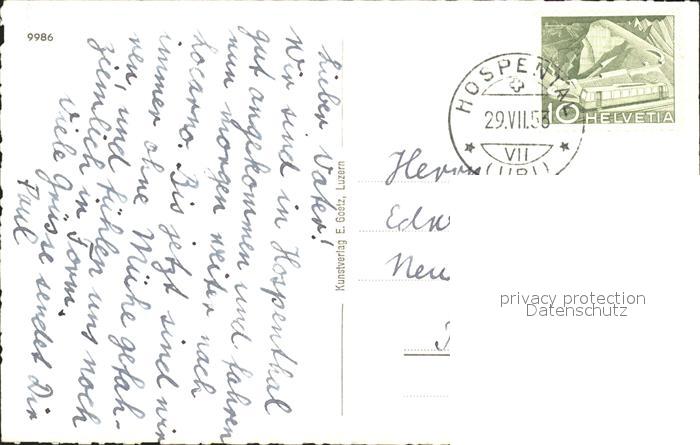 9986
Lieber Vater!
Wir sind in Hospenthal
gut angekommen und fahren
nun morgen weiter nach
Locarno. Bis jetzt sind wir
immer ohne Mühe gefah-
ren, und fühlen uns noch
ziemlich in Form.
Viele Grüsse sendet Dir
Paul
Kunstverlag E. Goetz, Luzern
HOSPENTAL
29.VII.53
VII
(URI)
10 HELVETIA
Herrn
privacy protection
Datenschutz